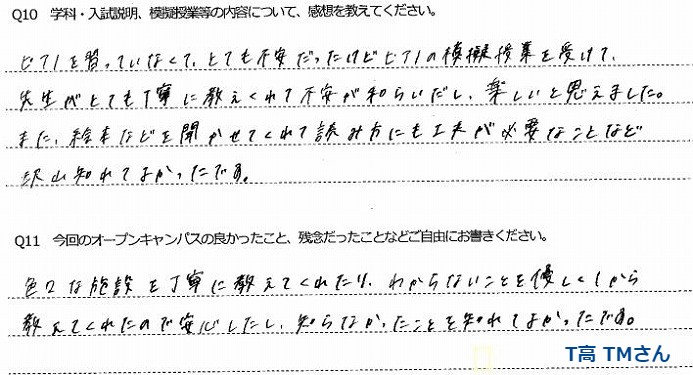 Q10 学科・入試説明、模擬授業等の内容について、感想を教えてください。
ピアノを習っていなくて、とても不安だったけどピアノの模擬授業を受けて、
先生がとても丁寧に教えてくれて不安が和らいだし、楽しいと思えました。
また、絵本などを聞かせてくれて読み方にも工夫が必要なことなど
沢山知れてよかったです。
Q11 今回のオープンキャンパスの良かったこと、残念だったことなどご自由にお書きください。
色々な施設を丁寧に教えてくれたり、わからないことを優しく1から
教えてくれたので安心したし、知らなかったことを知れてよかったです。
T高 TMさん